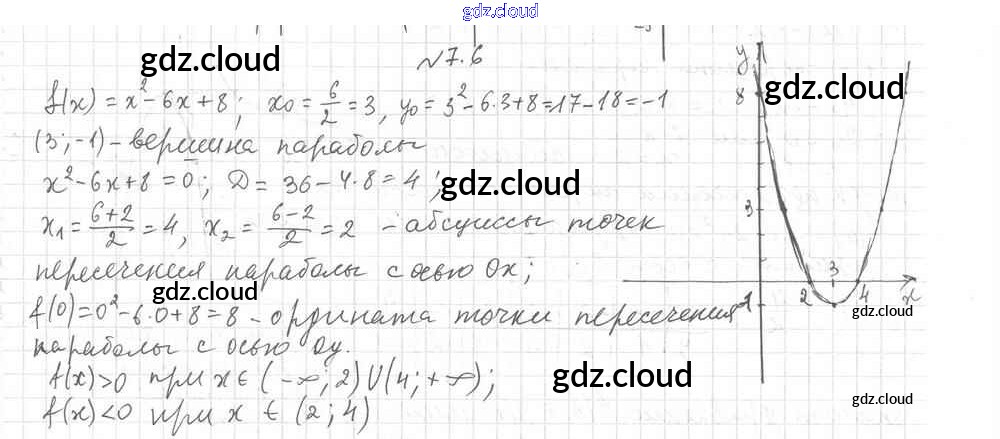 gdz.cloud
№7.6
gdz.cloud
f(x) = x² - 6x + 8; x₀ = 6/2 = 3, y₀ = 3² - 6·3 + 8 = 17 - 18 = -1
(3; -1) - вершина параболы
x² - 6x + 8 = 0; D = 36 - 4·8 = 4;
gdz.cloud
x₁ = (6+2)/2 = 4, x₂ = (6-2)/2 = 2 - абсциссы точек
пересечения параболы с осью Ox;
gdz.cloud
f(0) = 0² - 6·0 + 8 = 8 - ордината точки пересечения
параболы с осью Oy.
f(x) > 0 при x ∈ (-∞; 2) ∪ (4; +∞);
gdz.cloud
f(x) < 0 при x ∈ (2; 4)
y
8
gdz.cloud
3
2 3 4 x
-1
gdz.cloud
gdz.cloud